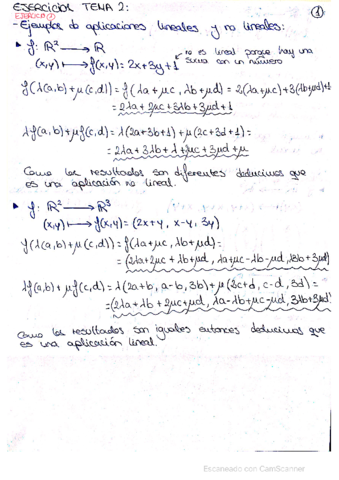 EJERCICIOS TEMA 2:
①
EJERCICIO ②
- Ejemplos de aplicaciones lineales y no lineales:
• f: ℝ² → ℝ
(x,y) ↦ f(x,y) = 2x+3y+1
no es lineal porque hay una
suma con un número
f(λ(a,b)+μ(c,d)) = f(λa+μc, λb+μd) = 2(λa+μc)+3(λb+μd)+1
= 2λa+2μc+3λb+3μd+1
λf(a,b)+μf(c,d) = λ(2a+3b+1)+μ(2c+3d+1) =
= 2λa+3λb+λ+2μc+3μd+μ
Como los resultados son diferentes deducimos que
es una aplicación no lineal.
• f: ℝ² → ℝ³
(x,y) ↦ f(x,y) = (2x+y, x-y, 3y)
f(λ(a,b)+μ(c,d)) = f(λa+μc, λb+μd) =
= (2λa+2μc+λb+μd, λa+μc-λb-μd, 3λb+3μd)
λf(a,b)+μf(c,d) = λ(2a+b, a-b, 3b)+μ(2c+d, c-d, 3d) =
= (2λa+λb+2μc+μd, λa-λb+μc-μd, 3λb+3μd)
Como los resultados son iguales entonces deducimos que
es una aplicación lineal.
Escaneado con CamScanner